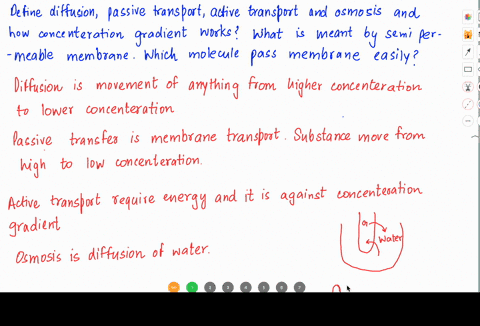 Define diffusion, passive transport, active transport and osmosis and
how concenteration gradient works? What is meant by semi per-
-meable membrane. Which molecule pass membrane easily?
Diffusion is movement of anything from higher concenteration
to lower concenteration
Passive transfer is membrane transport. Substance move from
high to low concenteration.
Active transport require energy and it is against concenteration
gradient
Osmosis is diffusion of water.
water